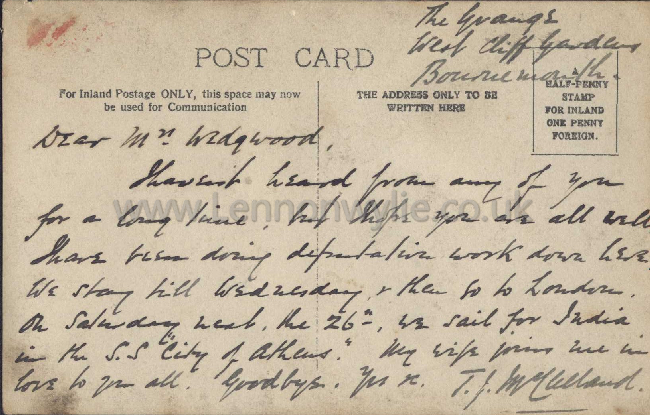 The Grange
West Cliff Gardens
Bournemouth.
POST CARD
For Inland Postage ONLY, this space may now
be used for Communication
THE ADDRESS ONLY TO BE
WRITTEN HERE
HALF-PENNY
STAMP
FOR INLAND
ONE PENNY
FOREIGN.
Dear Mrs Wedgwood,
I haven't heard from any of you
for a long time, but hope you are all well
I have been doing deputation work down here,
We stay till Wednesday, & then go to London.
On Saturday next, the 26th, we sail for India
in the S.S "City of Athens." My wife joins me in
love to you all. Goodbye. Yrs &c. T. J. McClelland.
www.Lennonwylie.co.uk